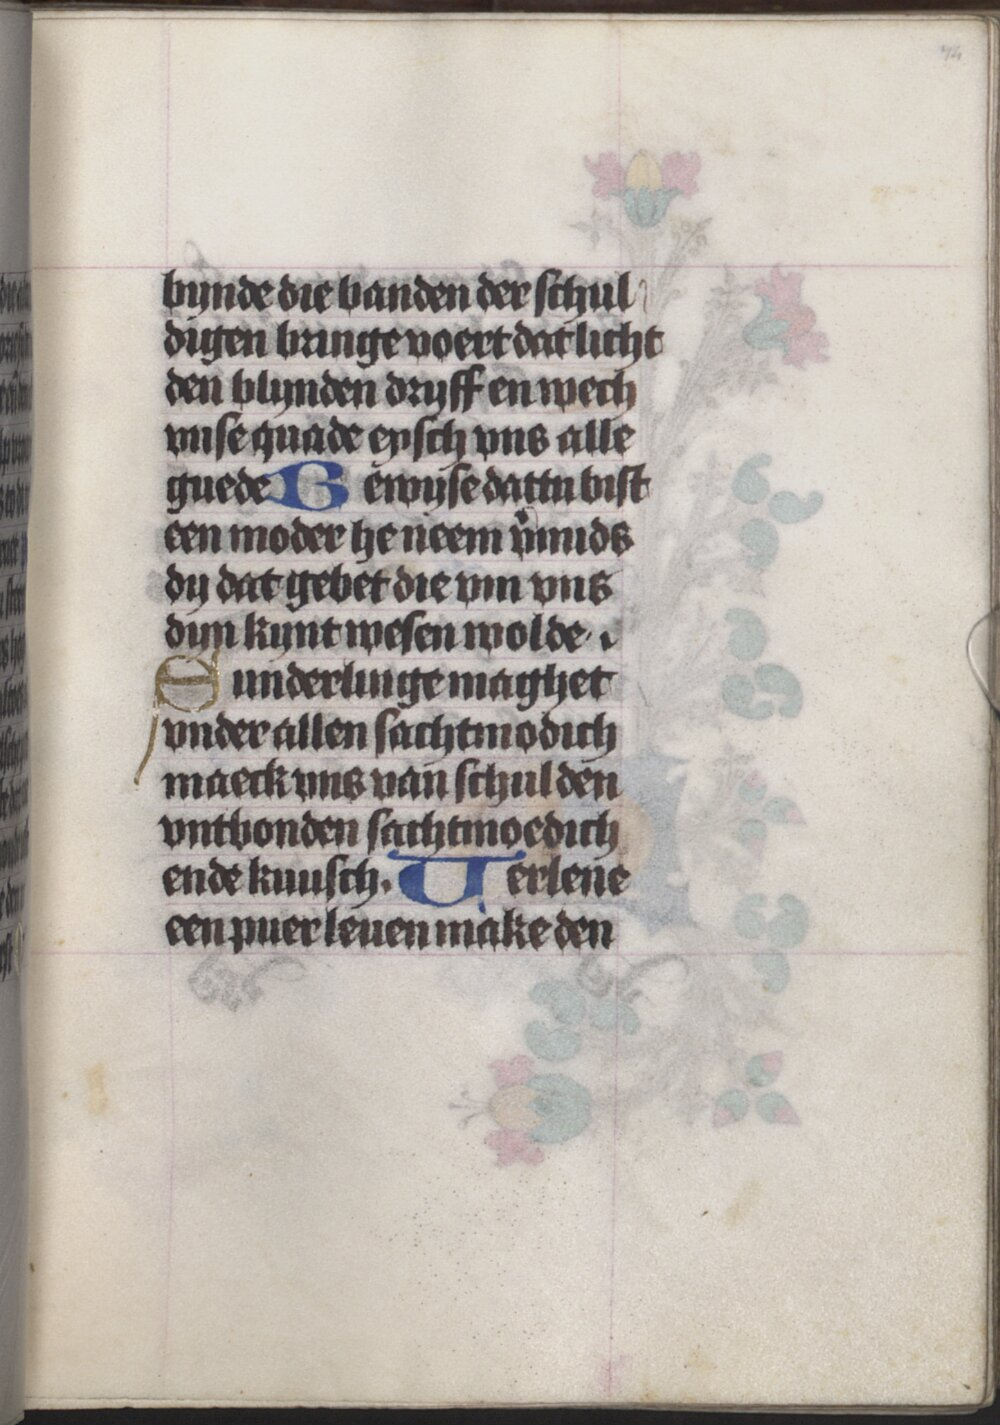 bynde die banden der schul
digen bringe voert dat licht
den blynden dryff en wech
vnse quade eysch vns alle
guede Bewyse dattu bist
een moder he neem v̄mids
dy dat gebet die vm vns
dyn kynt wesen wolde.
Sunderlinge maghet
vnder allen sachtmodich
maeck vns van schulden
vntbonden sachtmoedich
ende kuusch. Verlene
een puer leuen make den